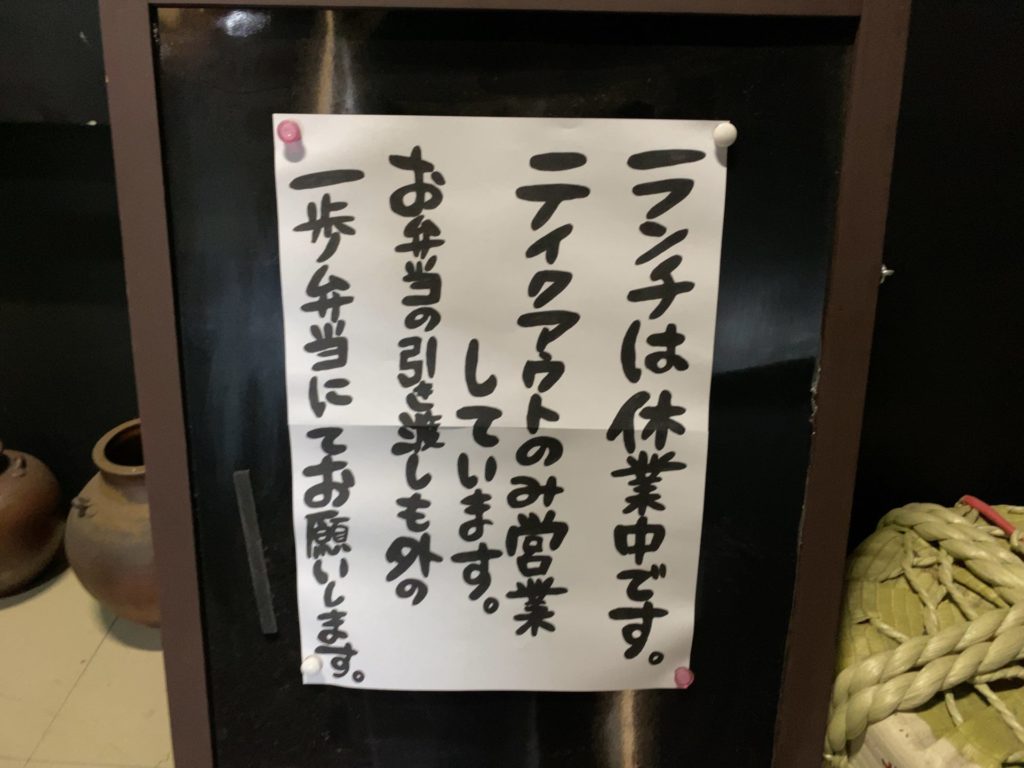 ランチは休業中です。
テイクアウトのみ営業
しています。
お弁当の引き渡しも外の
一歩弁当にてお願いします。